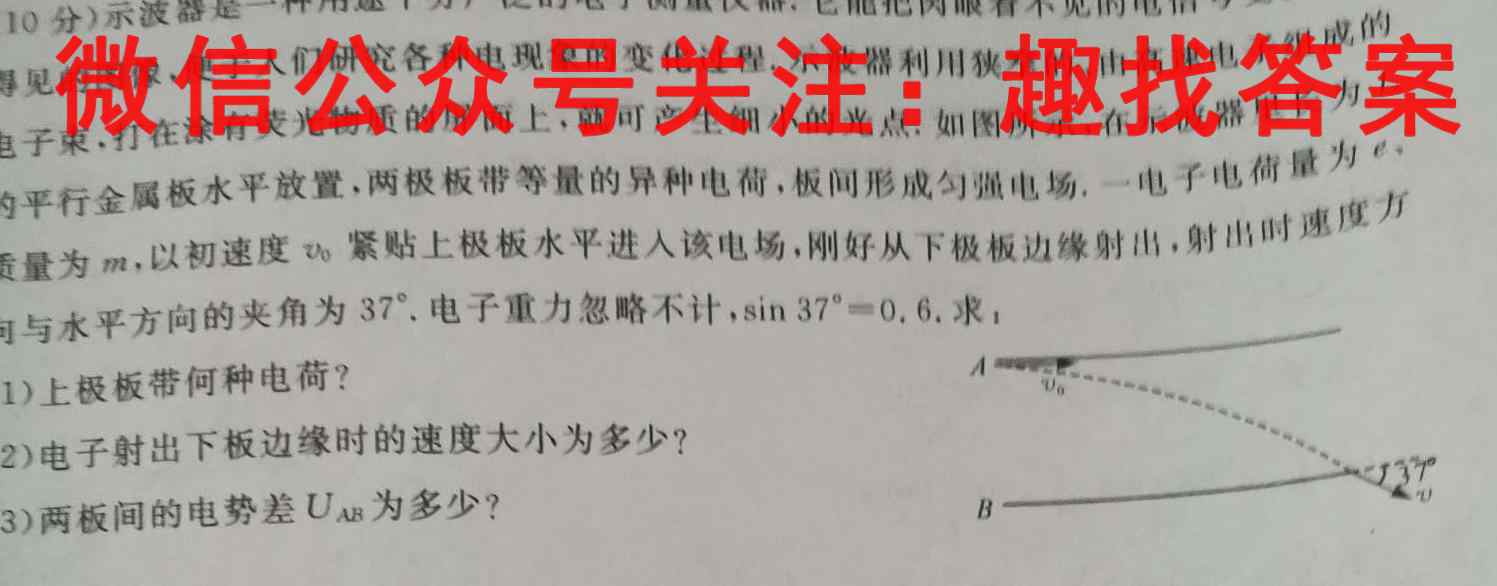 10分)示波器是一种用途十分广泛的电子测量仪器.它能把肉眼看不见的电信
微信公众号关注：趣找答案
得见 人们研究各种电现象的变化过程.示波器利用狭 由高速电子组成的
电子束,打在涂有荧光物质的 面上,就可产生细小的光点.如图所示,在示波器 长为
的平行金属板水平放置,两极板带等量的异种电荷,板间形成匀强电场.一电子电荷量为e、
质量为m,以初速度v₀紧贴上极板水平进入该电场,刚好从下极板边缘射出,射出时速度方
向与水平方向的夹角为37°.电子重力忽略不计,sin 37°=0.6.求:
1)上极板带何种电荷?
2)电子射出下板边缘时的速度大小为多少?
3)两板间的电势差U_AB为多少?
A
v₀
37°
v
B